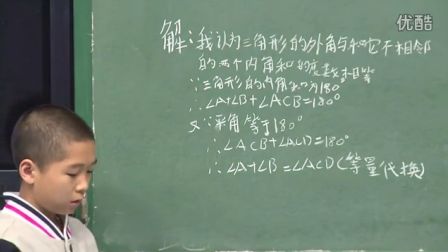 优酷
解：我认为三角形的外角与和它不相邻
的两个内角和的度数相等
∵三角形的内角和为180°
∴∠A+∠B+∠ACB=180°
又∵平角等于180°
∴∠ACB+∠ACD=180°
∴∠A+∠B=∠ACD(等量代换)